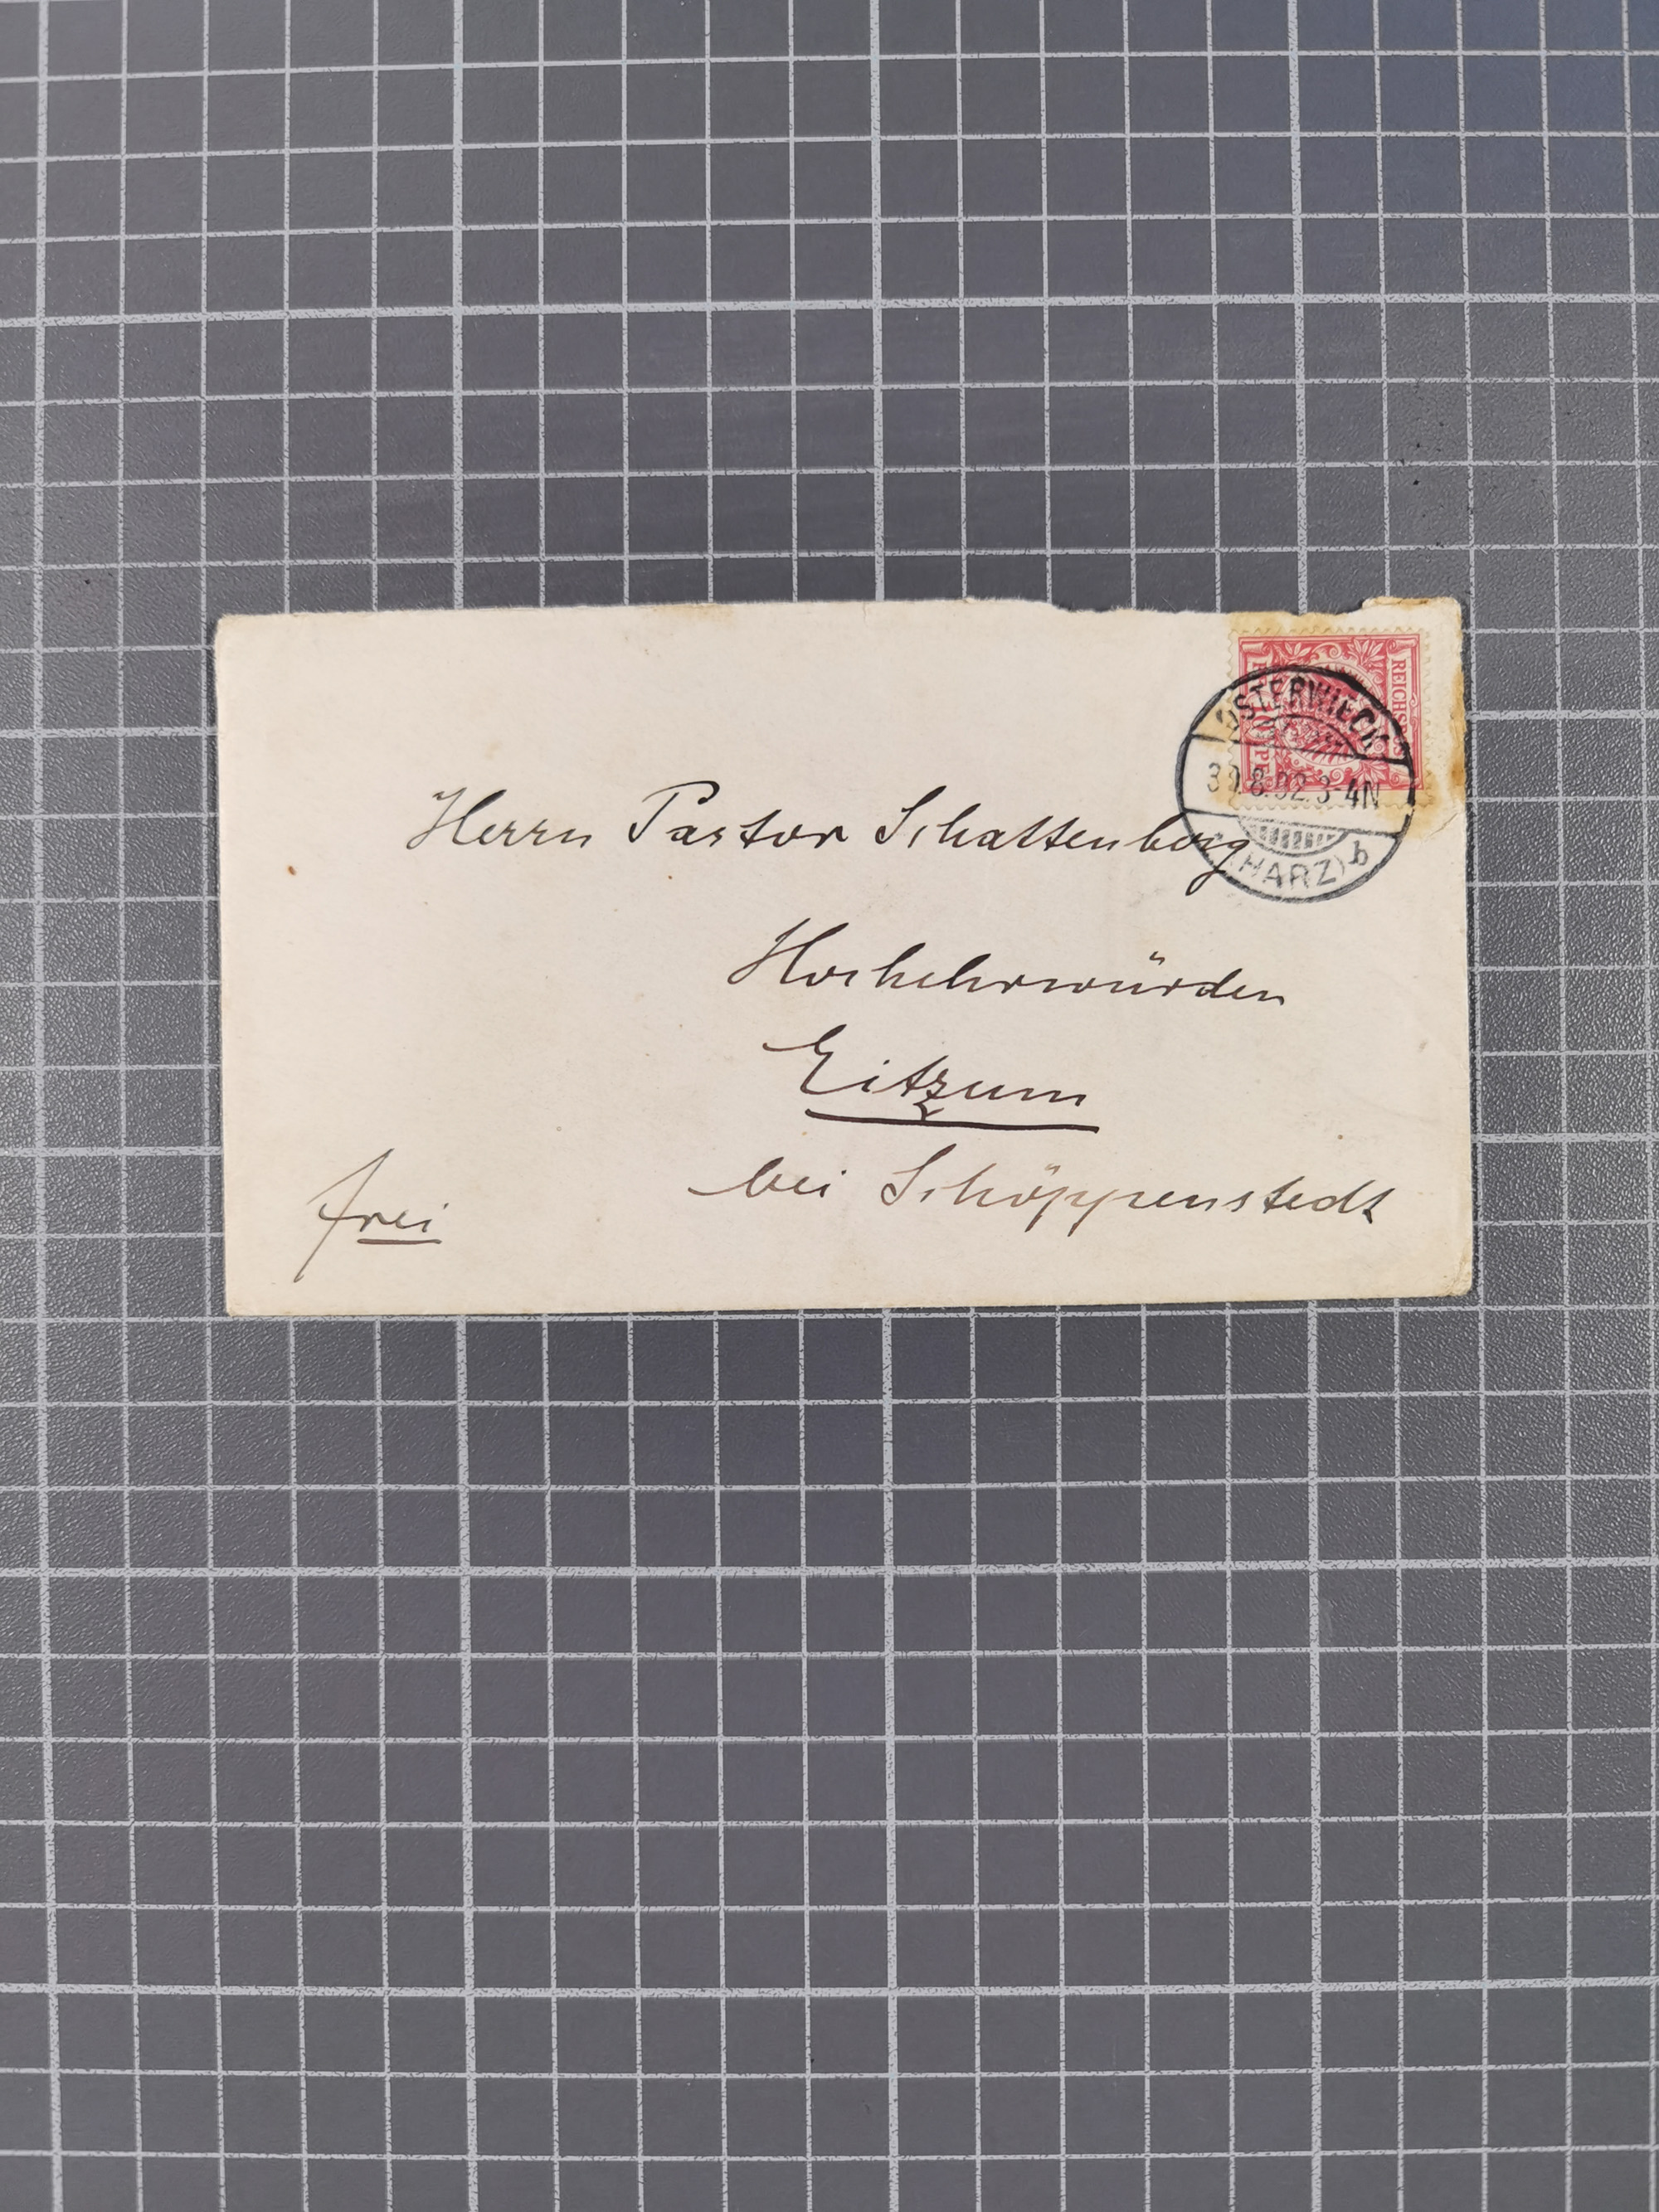 REICHSPOST
10
OSTERWIECK
30.8.92.3-4N
(HARZ) b
Herrn Pastor Schattenberg
Hochehrwürden
Eitzum
bei Schöppenstedt
frei